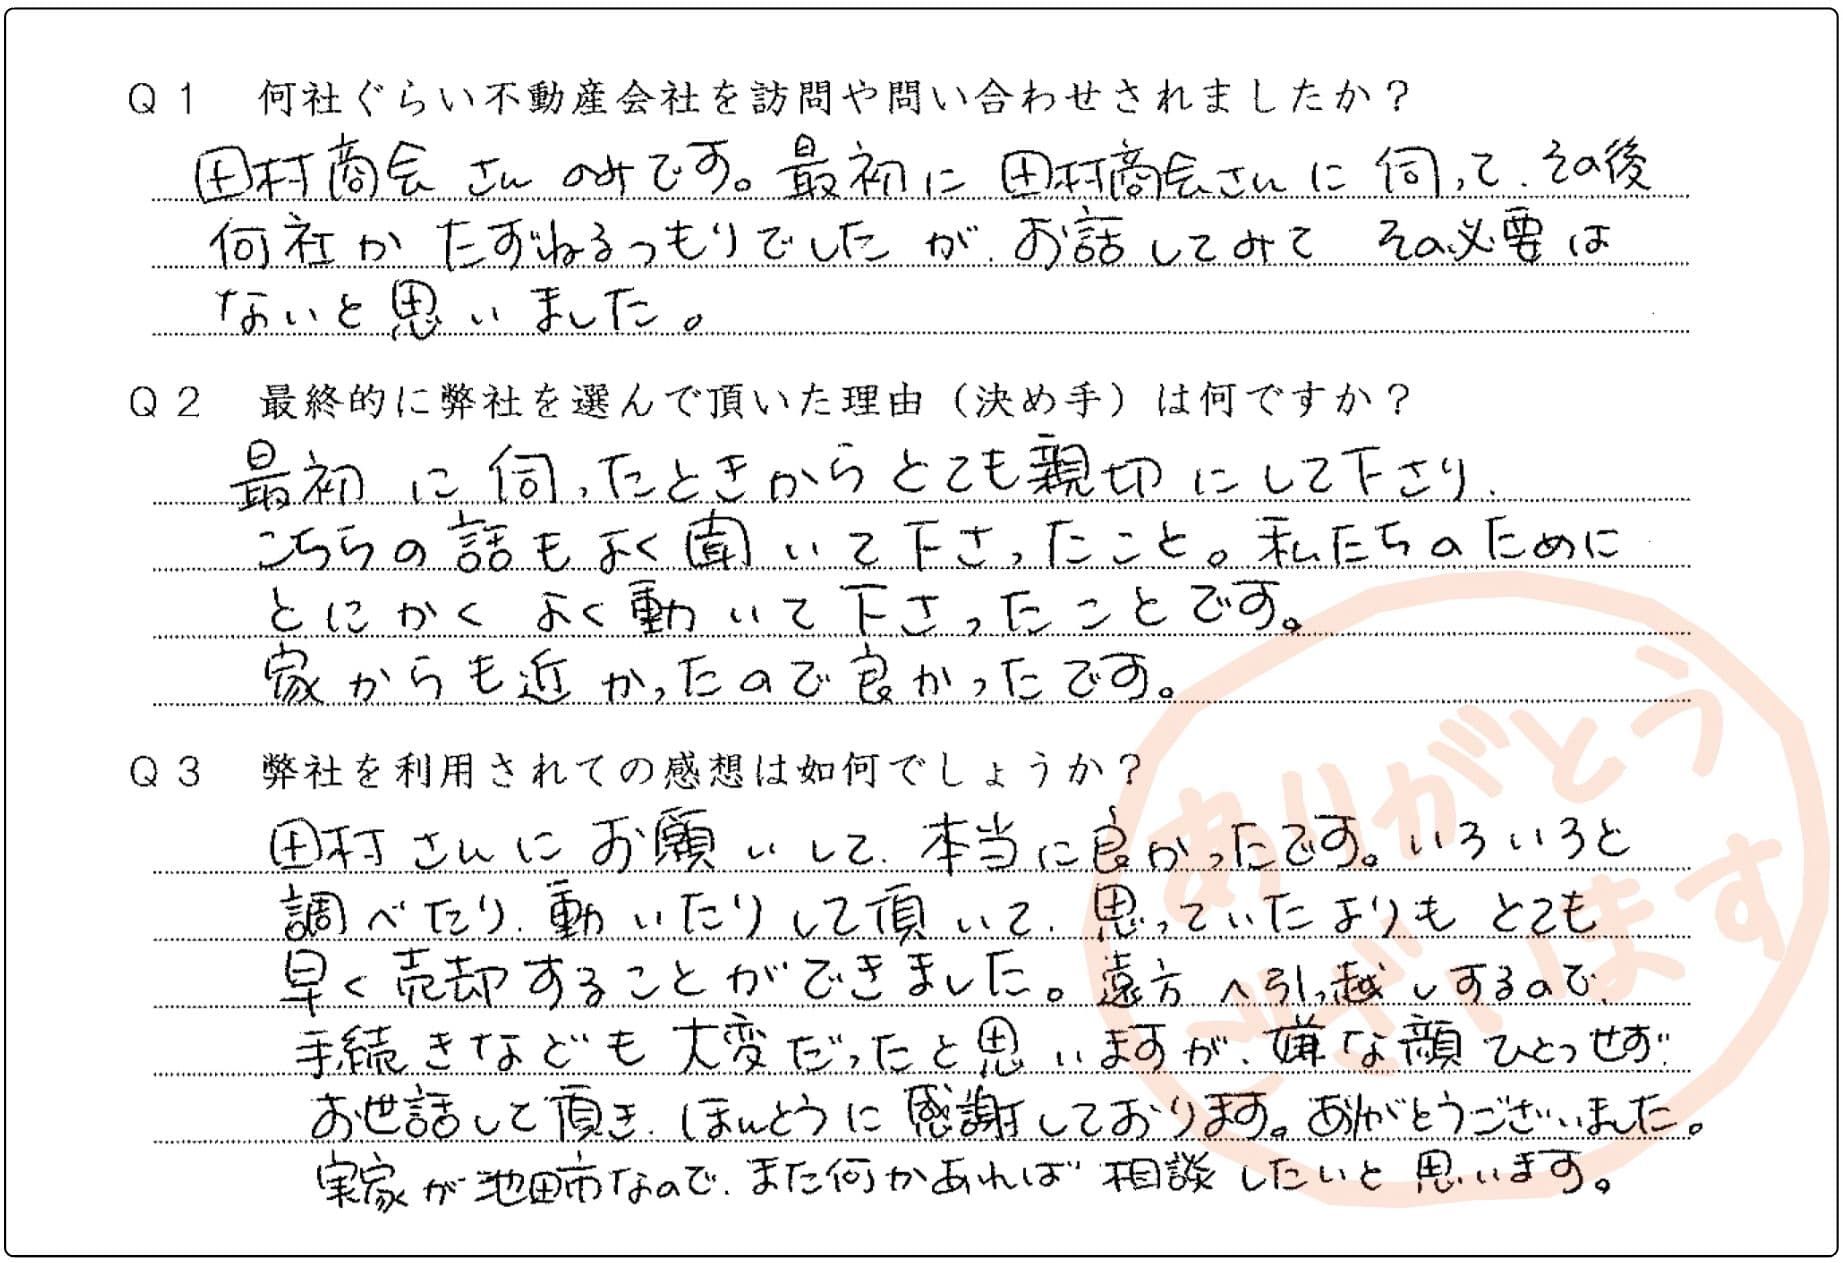 Q1 何社ぐらい不動産会社を訪問や問い合わせされましたか?
田村商会さんのみです。最初に田村商会さんに伺って、その後
何社かたずねるつもりでしたが、お話してみてその必要は
ないと思いました。
Q2 最終的に弊社を選んで頂いた理由（決め手）は何ですか?
最初に伺ったときからとても親切にして下さり、
こちらの話もよく聞いて下さったこと。私たちのために
とにかくよく動いて下さったことです。
家からも近かったので良かったです。
Q3 弊社を利用されての感想は如何でしょうか?
田村さんにお願いして、本当に良かったです。いろいろと
調べたり、動いたりして頂いて、思っていたよりもとても
早く売却することができました。遠方へ引っ越しするので、
手続きなども大変だったと思いますが、嫌な顔ひとつせず
お世話して頂き、ほんとうに感謝しております。ありがとうございました。
実家が池田市なので、また何かあれば相談したいと思います。
ありがとう
ございます